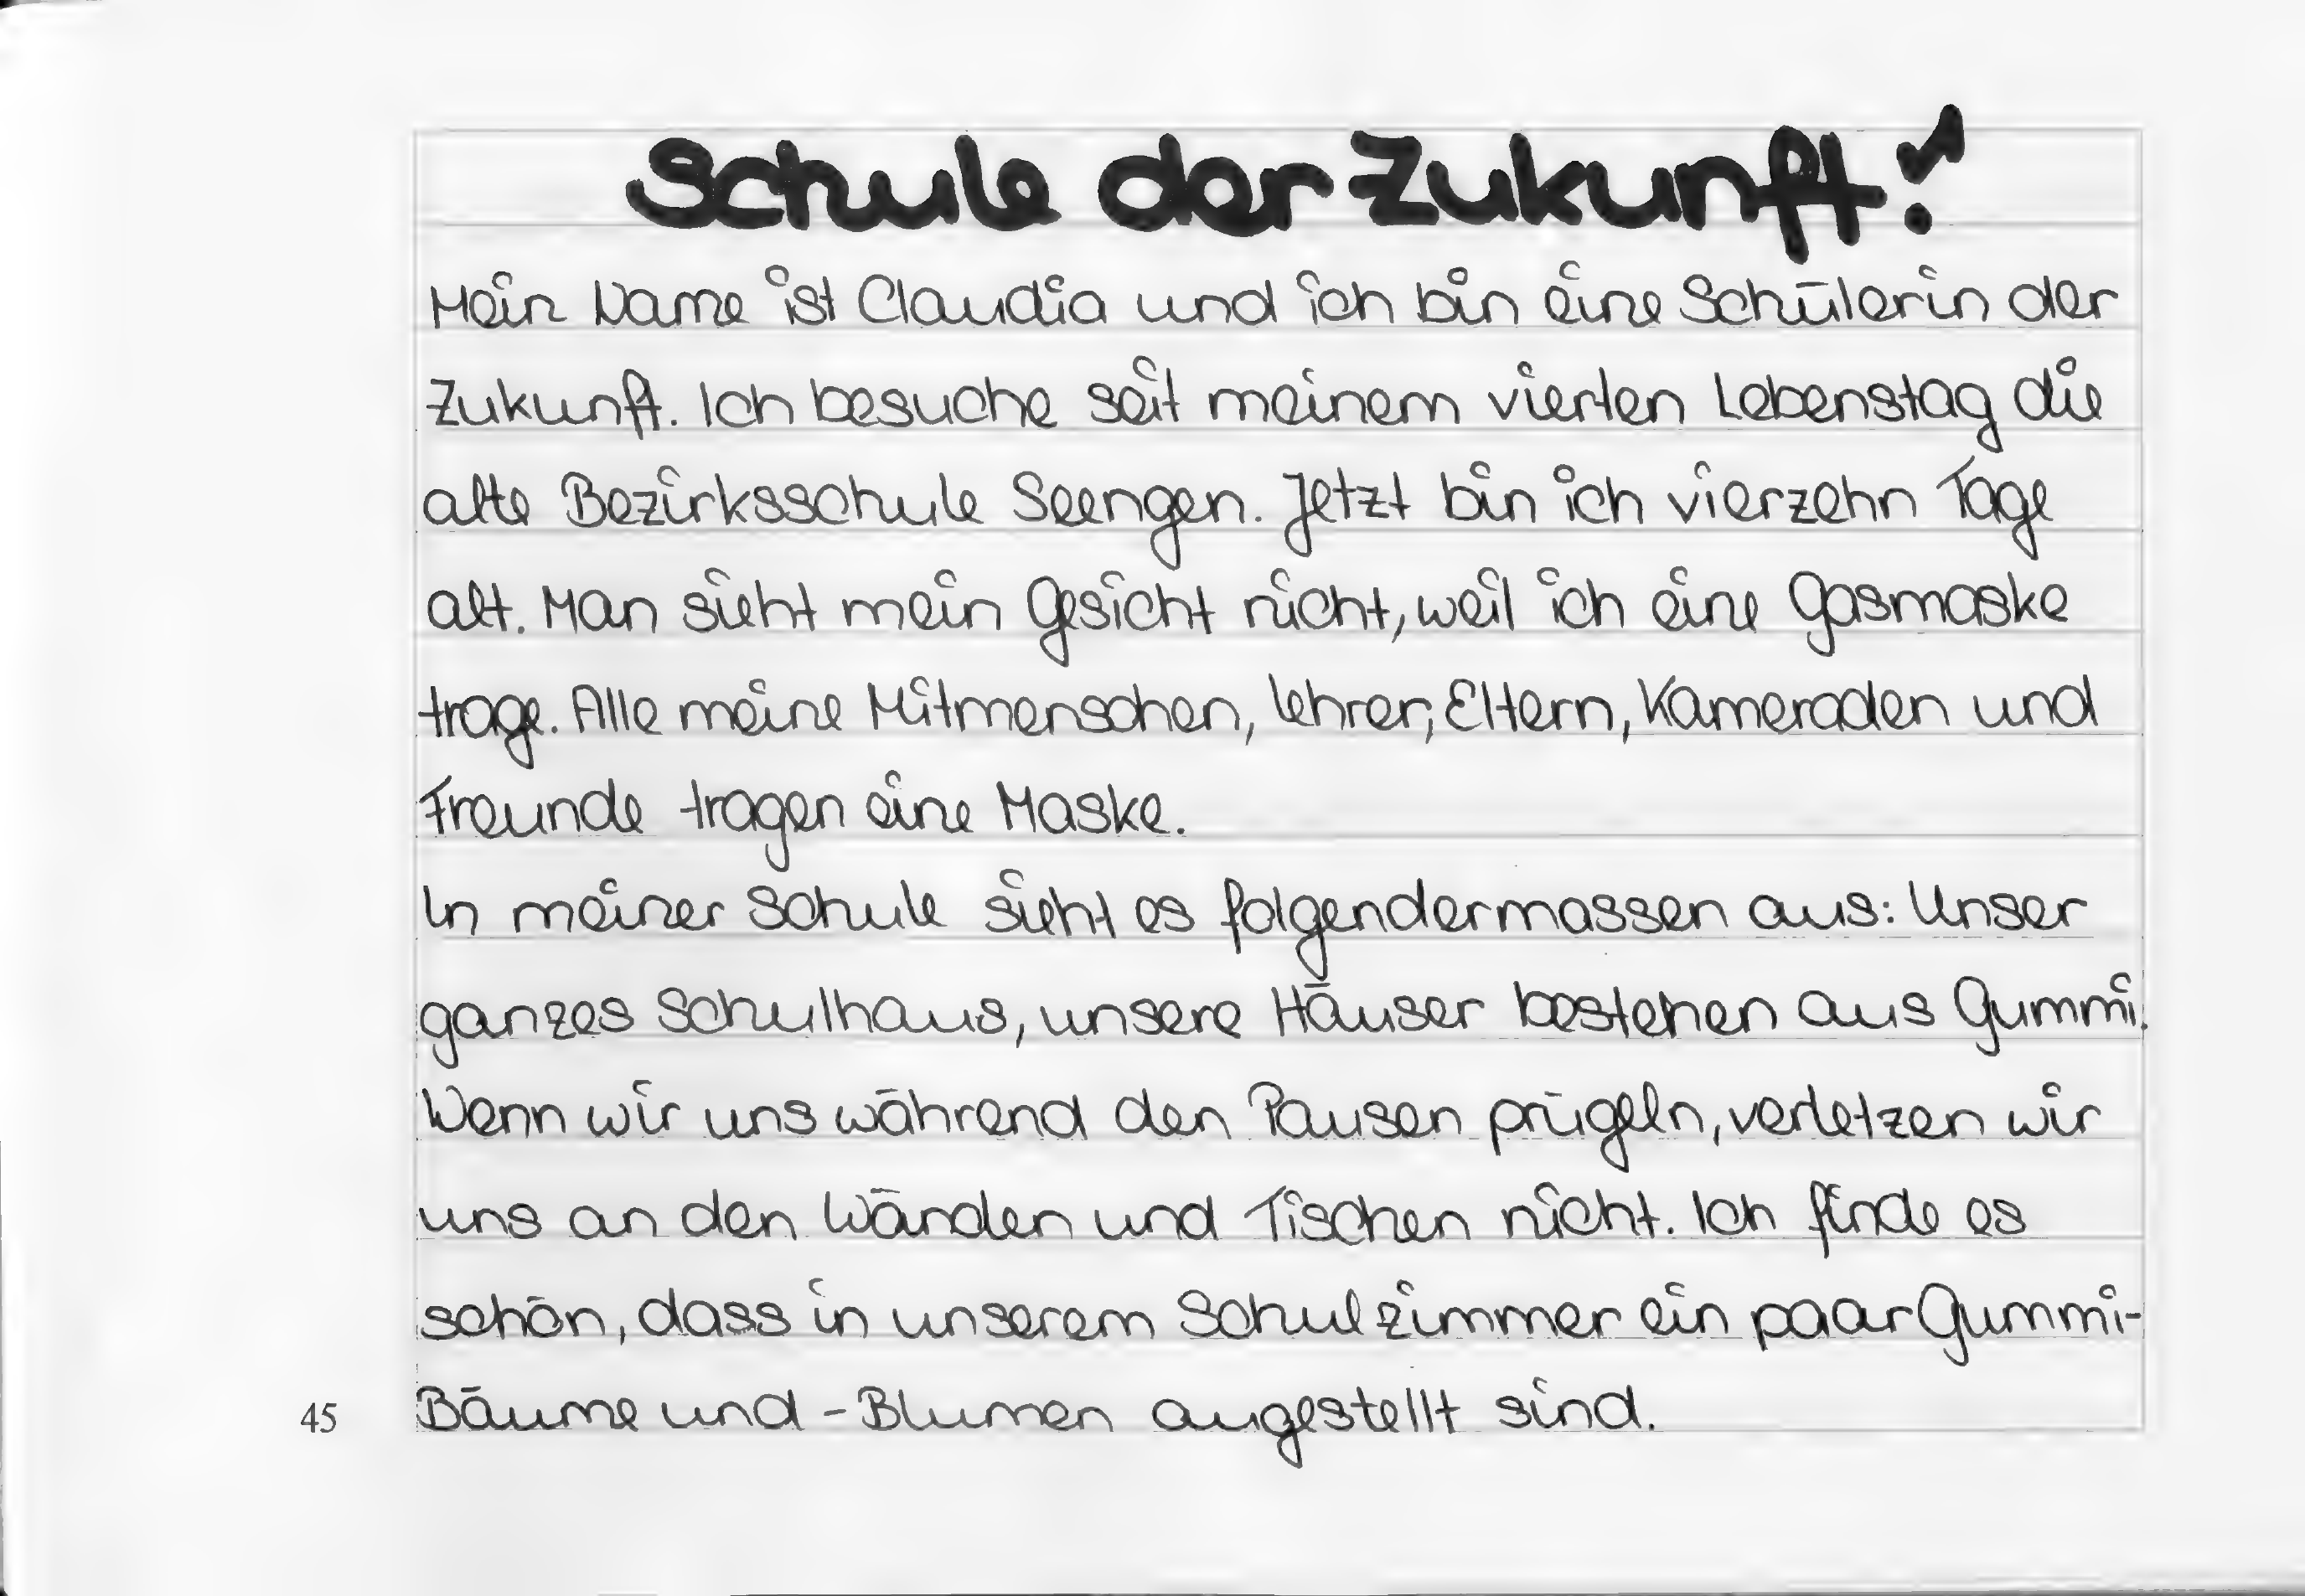 Schule der Zukunft!
Mein Name ist Claudia und ich bin eine Schülerin der
Zukunft. Ich besuche seit meinem vierten Lebenstag die
alte Bezirksschule Seengen. Jetzt bin ich vierzehn Tage
alt. Man sieht mein Gesicht nicht, weil ich eine Gasmaske
trage. Alle meine Mitmenschen, Lehrer, Eltern, Kameraden und
Freunde tragen eine Maske.
In meiner Schule sieht es folgendermassen aus: Unser
ganzes Schulhaus, unsere Häuser bestehen aus Gummi.
Wenn wir uns während den Pausen prügeln, verletzen wir
uns an den Wänden und Tischen nicht. Ich finde es
schön, dass in unserem Schulzimmer ein paar Gummi-
Bäume und -Blumen augestellt sind.
45